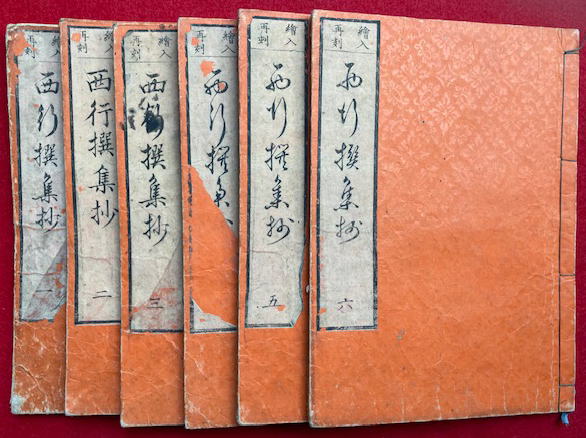 繪入
再刻
西行撰集抄
一
繪入
再刻
西行撰集抄
二
繪入
再刻
西行撰集抄
三
繪入
再刻
西行撰集
繪入
再刻
西行撰集抄
五
繪入
再刻
西行撰集抄
六